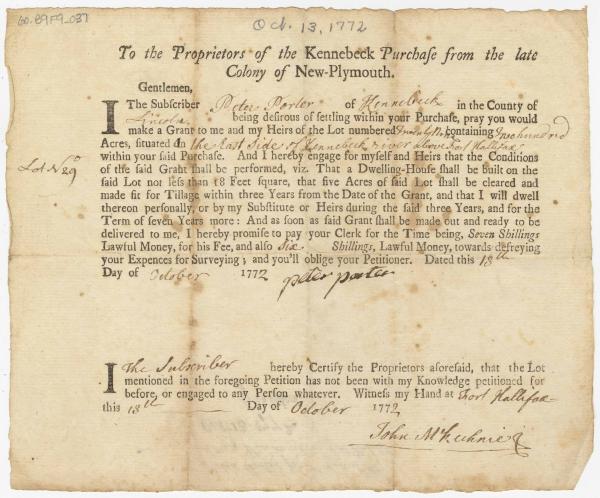 60.89F9_037
Oct. 13, 1772
To the Proprietors of the Kennebeck Purchaſe from the late
Colony of New-Plymouth.
Gentlemen,
I The Subſcriber Peter Porter of Kennebeck in the County of
Lincoln being deſirous of ſettling within your Purchaſe, pray you would
make a Grant to me and my Heirs of the Lot numbered containing
Acres, ſituated On the East Side of Kennebeck River above Fort Hallifax
Lot No 29
within your ſaid Purchaſe. And I hereby engage for myſelf and Heirs that the Conditions
of the ſaid Grant ſhall be performed, viz. That a Dwelling-Houſe ſhall be built on the
ſaid Lot not leſs than 18 Feet ſquare, that five Acres of ſaid Lot ſhall be cleared and
made fit for Tillage within three Years from the Date of the Grant, and that I will dwell
thereon perſonally, or by my Subſtitute or Heirs during the ſaid three Years, and for the
Term of ſeven Years more : And as ſoon as ſaid Grant ſhall be made out and ready to be
delivered to me, I hereby promiſe to pay your Clerk for the Time being, Seven Shillings
Lawful Money, for his Fee, and alſo Six Shillings, Lawful Money, towards defreying
your Expences for Surveying ; and you'll oblige your Petitioner. Dated this 13th
Day of October 1772
peter porter
I The Subscriber hereby Certify the Proprietors aforeſaid, that the Lot
mentioned in the foregoing Petition has not been with my Knowledge petitioned for
before, or engaged to any Perſon whatever. Witneſs my Hand at Fort Hallifax
this 13th Day of October 1772
John McKechnie